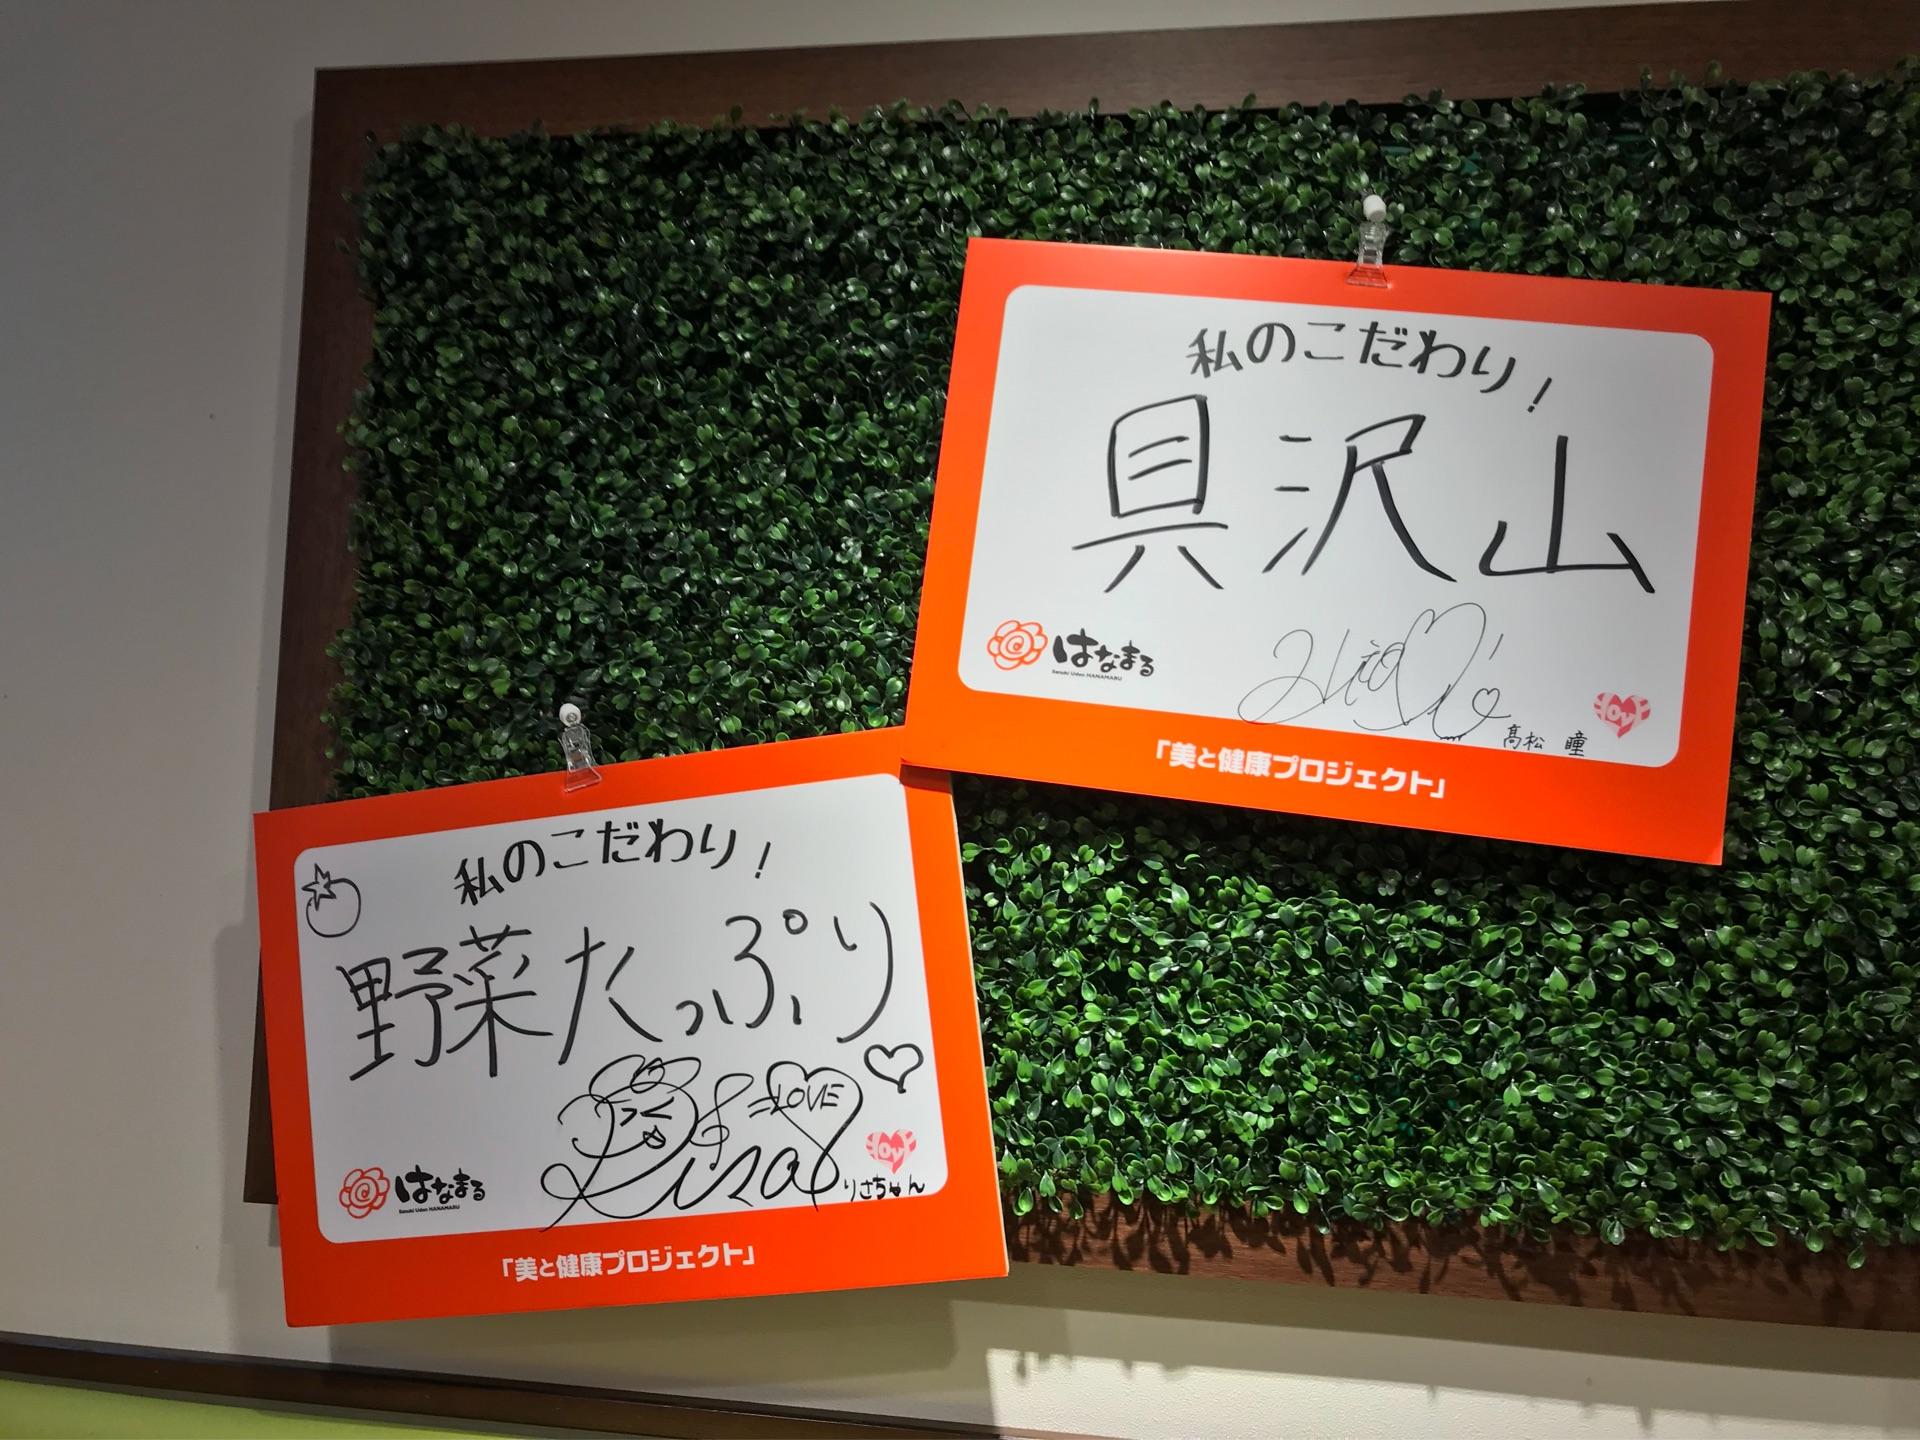 私のこだわり!
具沢山
はなまる
Sanuki Udon HANAMARU
髙松 瞳
「美と健康プロジェクト」
私のこだわり!
野菜たっぷり
=LOVE
Risa
はなまる
Sanuki Udon HANAMARU
りさちゃん
「美と健康プロジェクト」